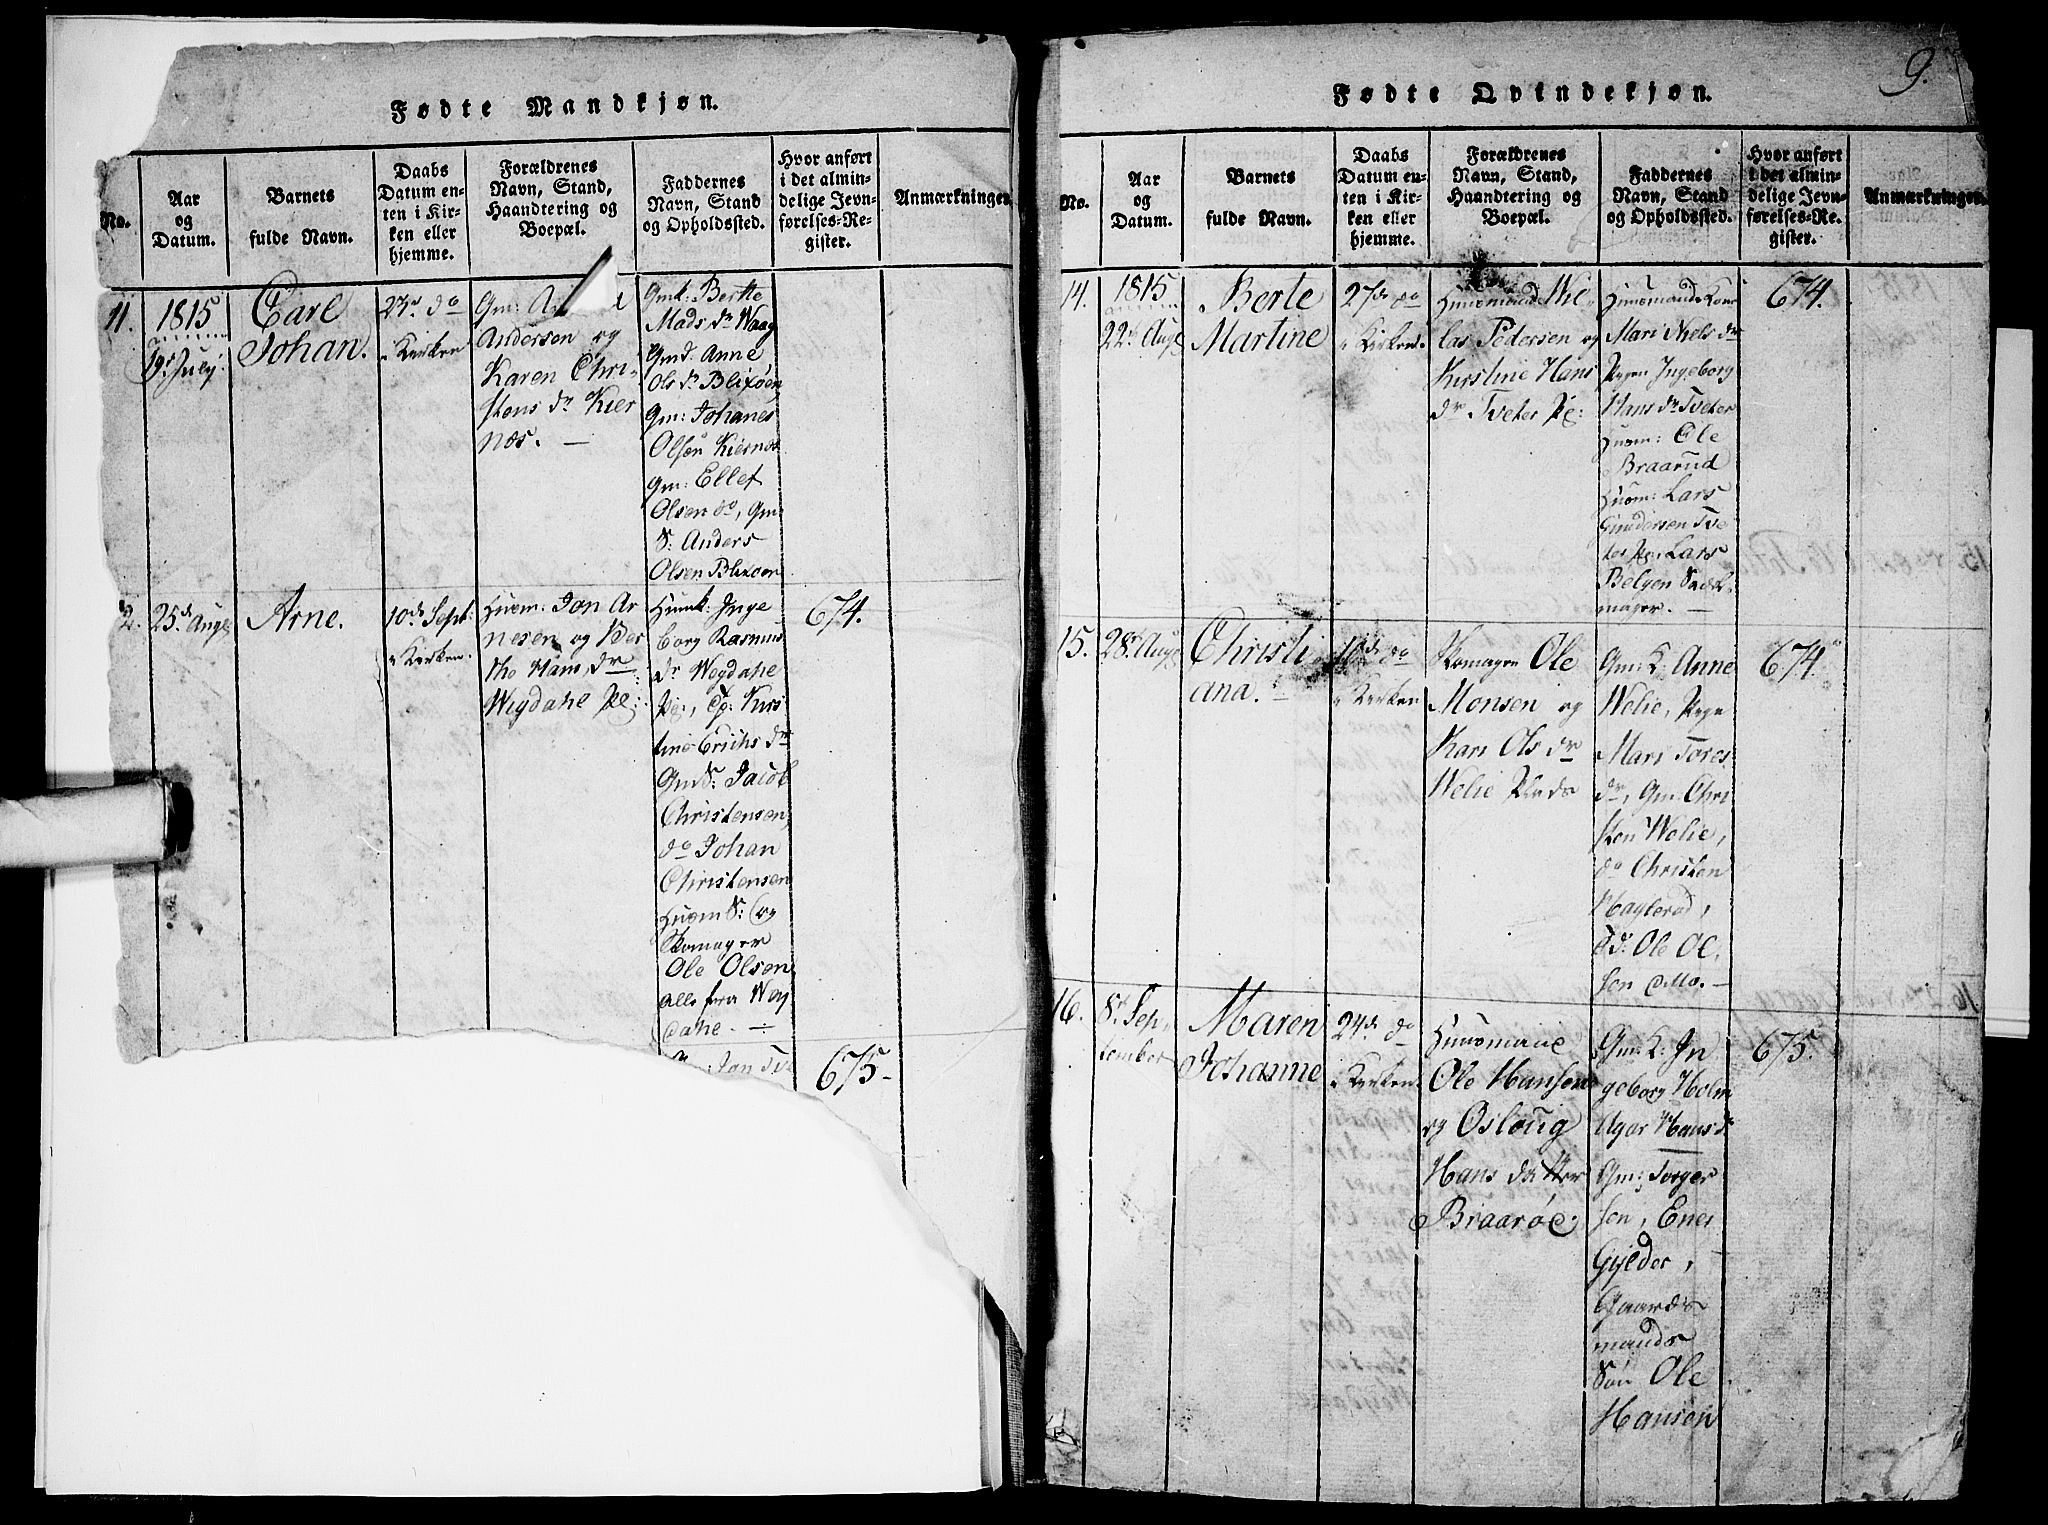 Fødte Mandkjøn.
No.
Aar
og
Datum.
Barnets
fulde Navn.
Daabs
Datum en-
ten i Kir-
ken eller
hjemme.
Forældrenes
Navn, Stand,
Haandtering og
Boepæl.
Faddernes
Navn, Stand
og Opholdssted.
Hvor anført
i det almin-
delige Jevn-
førelses-Re-
gister.
Anmærkninger
11.
1815
19de July.
Carl
Johan.
27de do
i Kirken
Gm:
Andersen og
Karen Chri-
stens dr Kier
næs. —
Gmk: Berthe
Mads dr Waag
Gmd: Anne
Ols dr Blixøen
Gm: Johanes
Olsen Kiernæs
Gm: Ellef
Olsen do, Gm:
S: Anders
Olsen Blixøen
2.
25de Aug
Arne.
10de Sept:
i Kirken.
Huusm: Jon Ar
nesen og Ber
the Hans dr
Wegdahl Pl:
Huusmk: Inge
borg Rasmus
dr Wegdahl
Pl:, Kirs
tine Erichs dr
GmdS: Jacob
Christensen,
do Johan
Christensen
Huusm S: og
Skomager
Ole Olsen
alle fra Weg
dahl. —
Jon
675-
674.
Fødte Qvindekjøn.
9.
No.
Aar
og
Datum.
Barnets
fulde Navn.
Daabs
Datum en-
ten i Kir-
ken eller
hjemme.
Forældrenes
Navn, Stand,
Haandtering og
Boepæl.
Faddernes
Navn, Stand
og Opholdssted.
Hvor anført
i det almin-
delige Jevn-
førelses-Re-
gister.
Anmærkninger.
14.
1815
22de Aug
Berte
Martine
27de do
i Kirken.
Huusmand Nie-
las Pedersen og
Kirstine Hans
dr Tveter Pl:
Huusmands Kone
Mari Niels dr
Pigen Ingeborg
Hans dr Tveter
Huusm: Ole
Braarud
Huusm: Lars
Gundersen Tve
ter Pl: Lars
Belgen Snedk-
mager. —
674.
15.
28de Aug
Christi
ana. —
10de do
i Kirken
Skomager Ole
Monsen og
Kari Ols dr
Welie Plads
Gm: K: Anne
Welie, Pige
Mari Tores
dr, Gm: Chri
sten Welie,
do Christen
Haglerød,
Ole Ol
sen Moe. —
674.
16.
8de Sep,
tember
Maren
Johanne
24de do
i Kirken.
Huusmand
Ole Hansen
og Osloug
Hans datter
Braarøe;
Gm: K: In
geborg Holm
Ager Hans dr
Gm: Torger
sen, Ener
Gylder,
Gaards
mands
Søn Ole
Hansen
675.